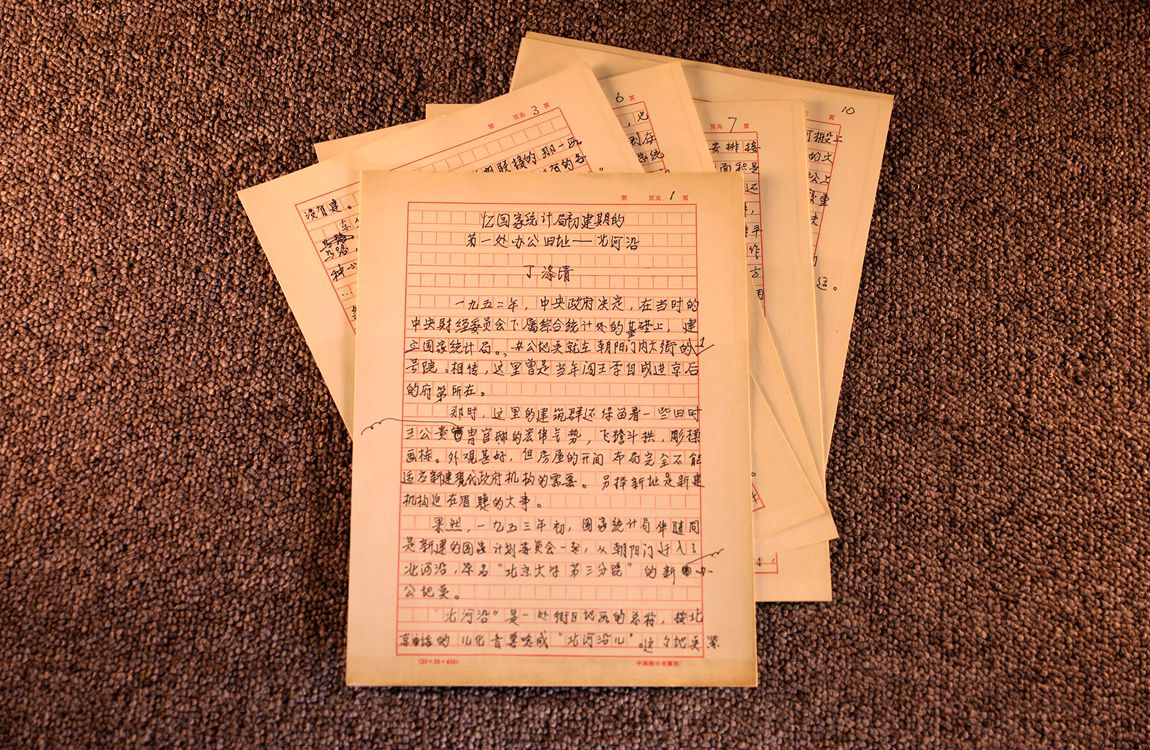 第 页共 1 页
忆国家统计局初建期的
第一处办公旧址——北河沿
丁涤清
一九五二年，中央政府决定，在当时的
中央财经委员会下属综合统计处的基础上，建
立国家统计局。办公地点就在朝阳门内大街的
号院。相传，这里曾是当年闯王李自成进京后
的府第所在。
那时，这里的建筑群还保留着一些旧时
王公贵胄官邸的宏伟气势，飞檐斗拱，雕樑
画栋。外观甚好，但房屋的开间布局完全不能
适应新建现代政府机构的需要。另择新址是新建
机构迫在眉睫的大事。
果然，一九五三年初，国家统计局伴随同
是新建的国家计划委员会一起，从朝阳门迁入了
北河沿，原名“北京大学第三分院”的新办
公地点。
“北河沿”是一处街区地点的总称，按北
京话的儿化音要唸成“北河沿儿”。这个地点紧
(20×20=400)
中国统计出版社
第 页共 3 页
没有建。
6 页
页共 7 页
安排接
面积是
还
平
作
方
10
的大
公上